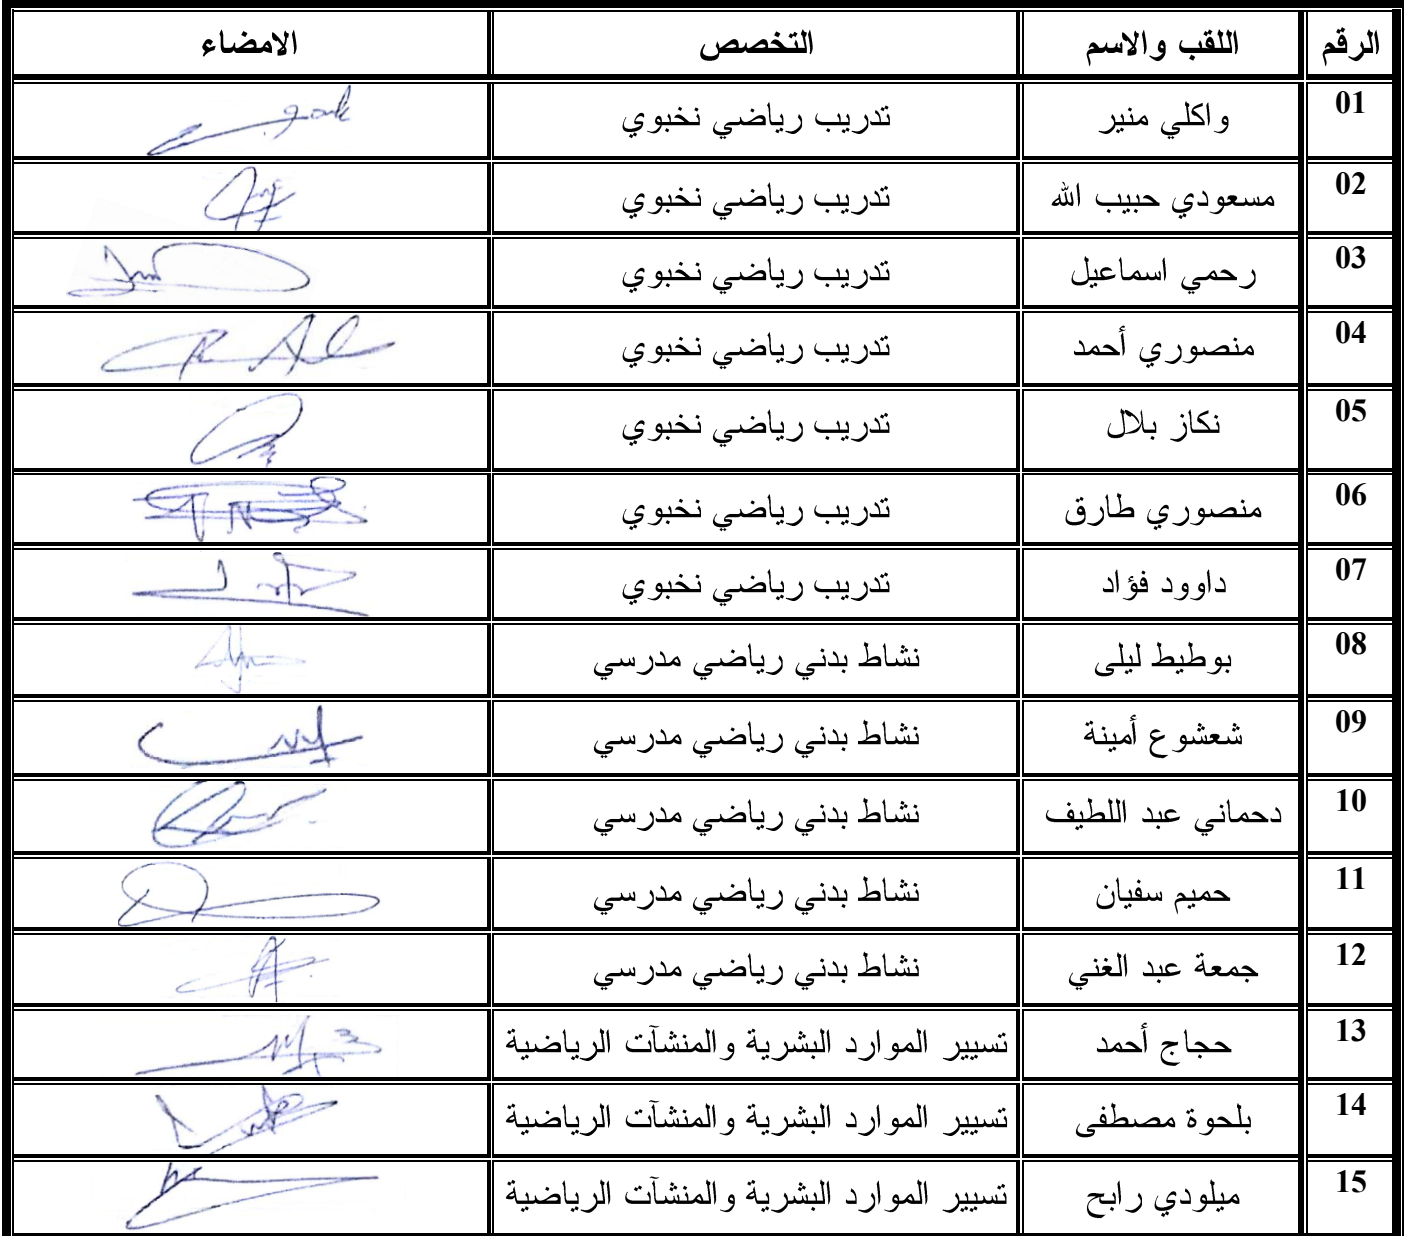 الرقم اللقب والاسم التخصص الامضاء
01 واكلي منير تدريب رياضي نخبوي
02 مسعودي حبيب الله تدريب رياضي نخبوي
03 رحمي اسماعيل تدريب رياضي نخبوي
04 منصوري أحمد تدريب رياضي نخبوي
05 نكاز بلال تدريب رياضي نخبوي
06 منصوري طارق تدريب رياضي نخبوي
07 داوود فؤاد تدريب رياضي نخبوي
08 بوطيط ليلى نشاط بدني رياضي مدرسي
09 شعشوع أمينة نشاط بدني رياضي مدرسي
10 دحماني عبد اللطيف نشاط بدني رياضي مدرسي
11 حميم سفيان نشاط بدني رياضي مدرسي
12 جمعة عبد الغني نشاط بدني رياضي مدرسي
13 حجاج أحمد تسيير الموارد البشرية والمنشآت الرياضية
14 بلحوة مصطفى تسيير الموارد البشرية والمنشآت الرياضية
15 ميلودي رابح تسيير الموارد البشرية والمنشآت الرياضية